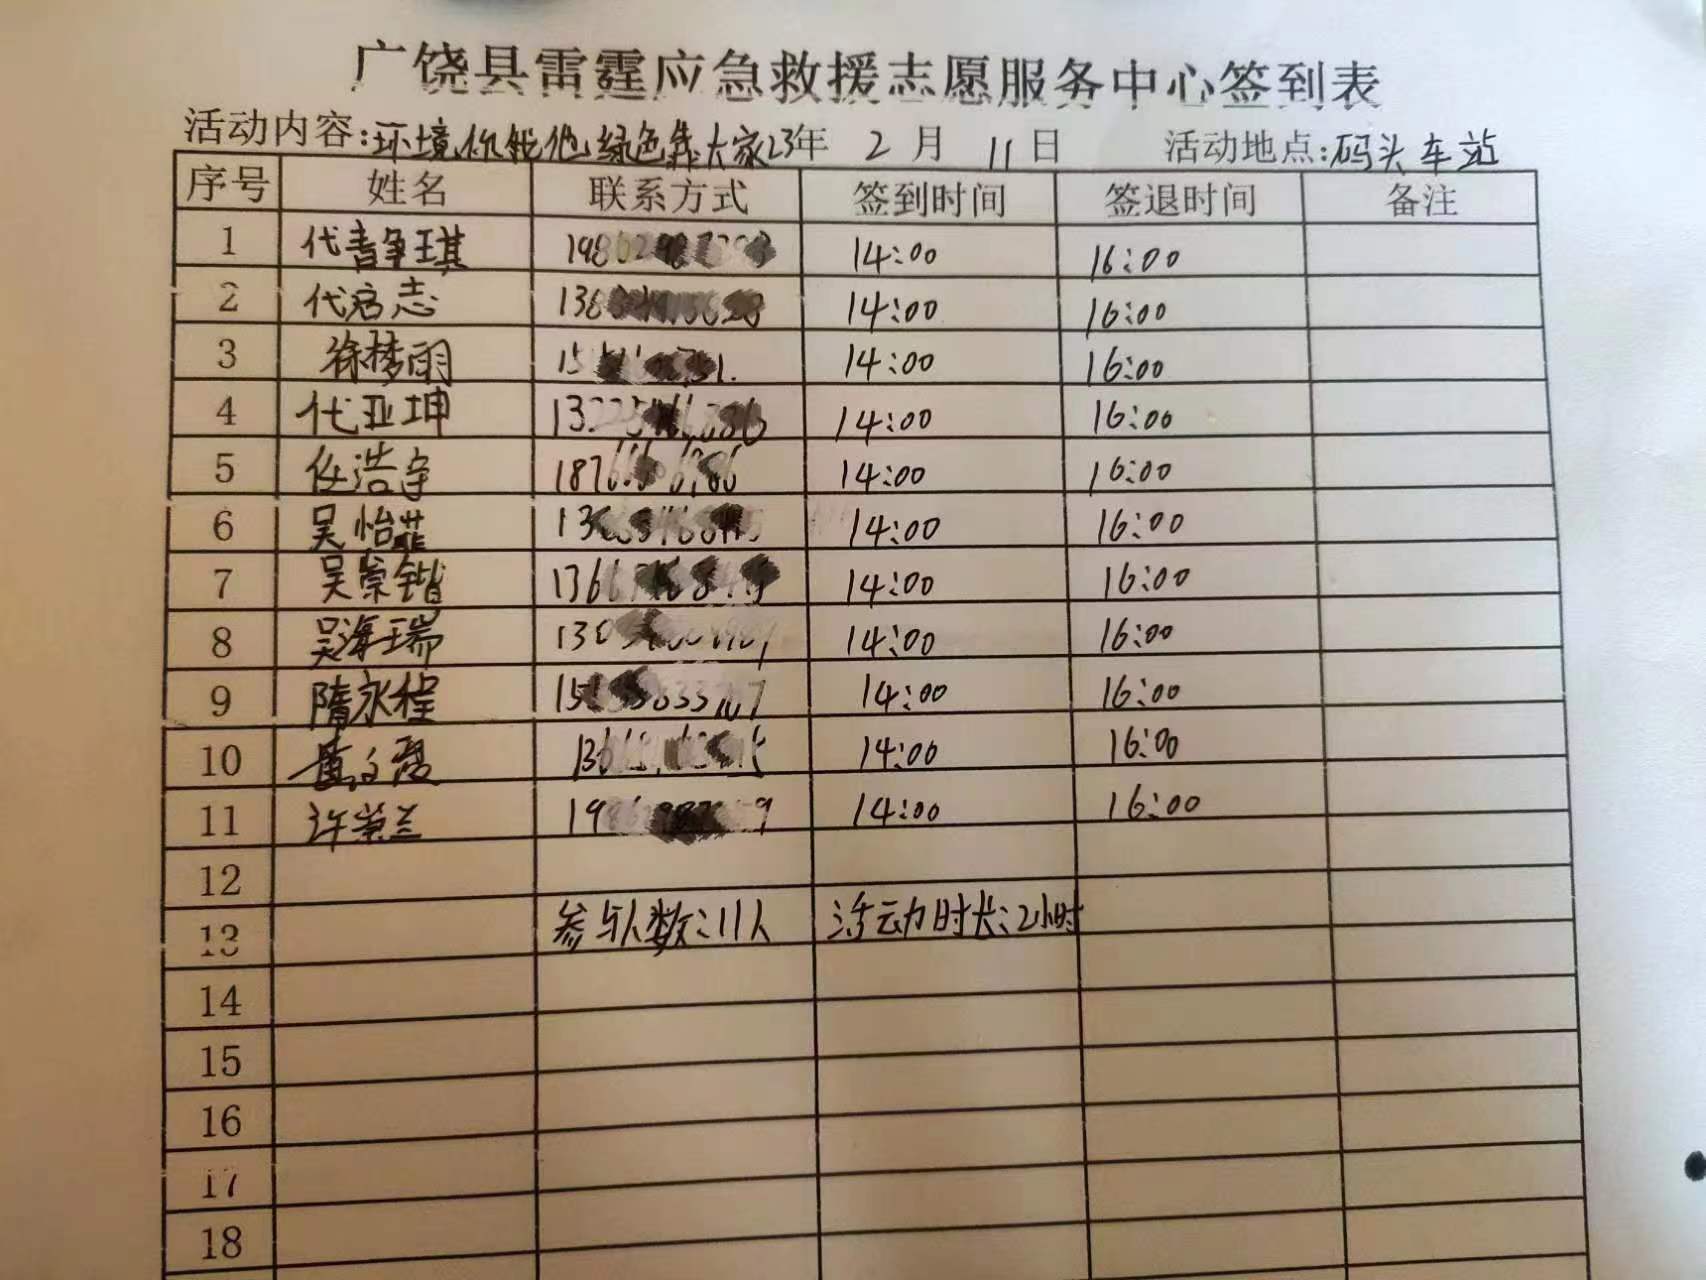 广饶县雷霆应急救援志愿服务中心签到表
活动内容:环境你我他绿色靠大家23年 2月 11日 活动地点:码头车站
序号 姓名 联系方式 签到时间 签退时间 备注
1 代青争琪 14:00 16:00
2 代启志 14:00 16:00
3 徐梦雨 14:00 16:00
4 代亚坤 14:00 16:00
5 任浩宇 14:00 16:00
6 吴怡菲 14:00 16:00
7 吴崇锴 14:00 16:00
8 吴海瑞 14:00 16:00
9 隋永程 14:00 16:00
10 14:00 16:00
11 许崇兰 14:00 16:00
12
13 参与人数:11人 活动时长:2小时
14
15
16
17
18